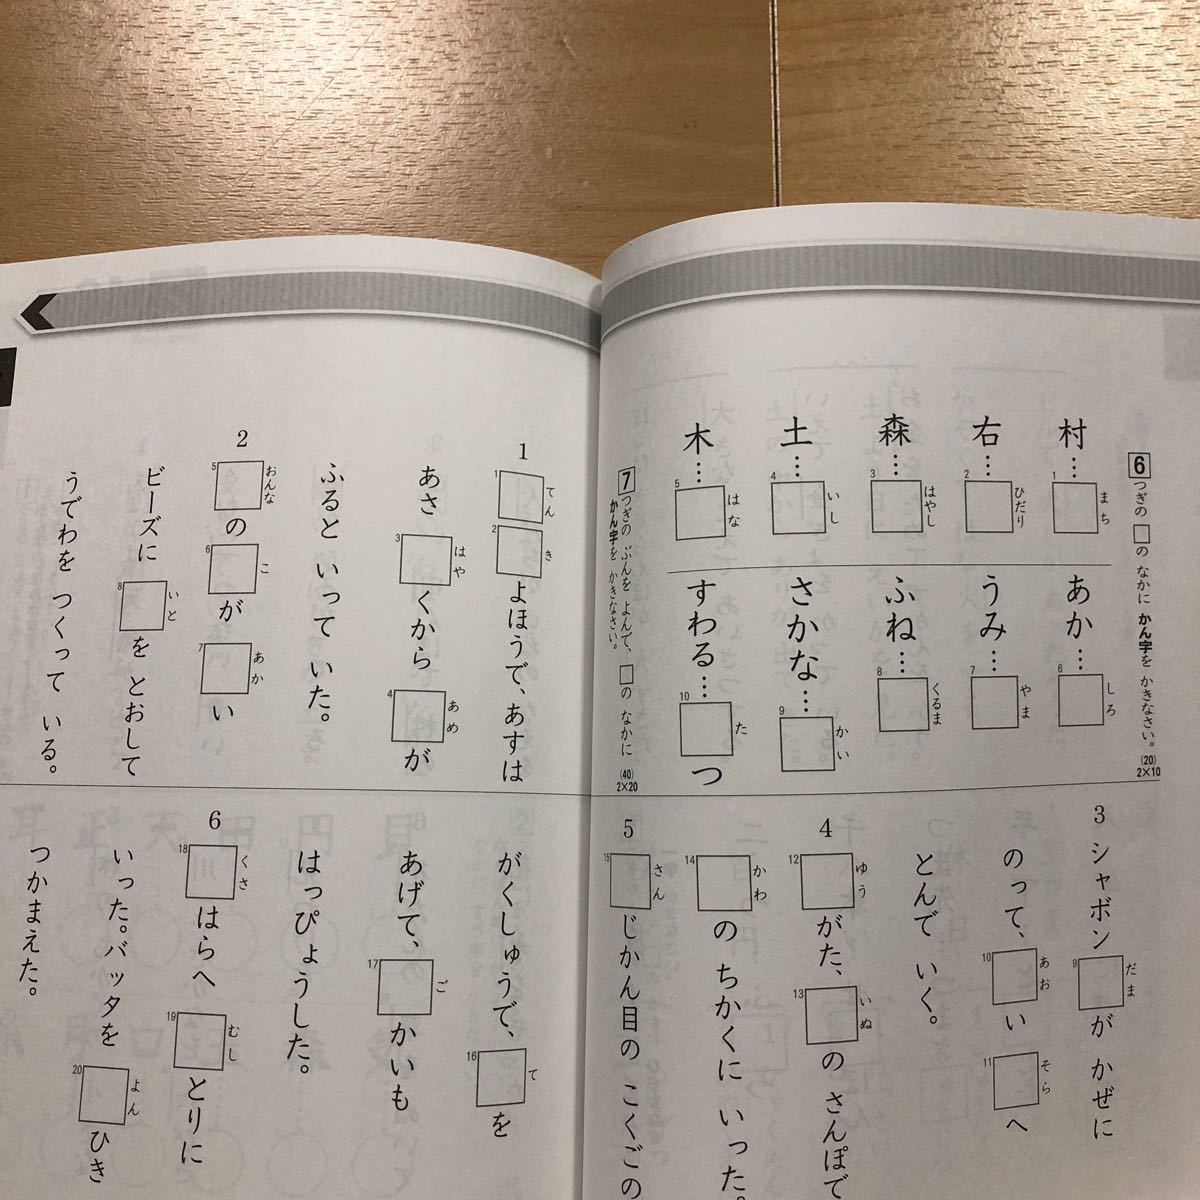 6 つぎの □の なかに かん字を かきなさい。 (20) 2×10
村…□ 1 まち
右…□ 2 ひだり
森…□ 3 はやし
土…□ 4 いし
木…□ 5 はな
あか…□ 6 しろ
うみ…□ 7 やま
ふね…□ 8 くるま
さかな…□ 9 かい
すわる…□つ 10 た
7 つぎの ぶんを よんで、□の なかに かん字を かきなさい。 (40) 2×20
1 □□よほうで、あすは 1 てん 2 き
あさ □くから □が 3 はや 4 あめ
ふると いって いた。
2 □の □が □い 5 おんな 6 こ 7 あか
ビーズに □を とおして 8 いと
うでわを つくって いる。
3 シャボン□が かぜに 9 だま
のって、□い □へ 10 あお 11 そら
とんで いく。
4 □がた、□の さんぽで 12 ゆう 13 いぬ
□の ちかくに いった。 14 かわ
5 □じかん目の こくごの 15 さん
がくしゅうで、□を 16 て
あげて、□かいも 17 ご
はっぴょうした。
6 □はらへ □とりに 18 くさ 19 むし
いった。バッタを □ひき 20 よん
つかまえた。